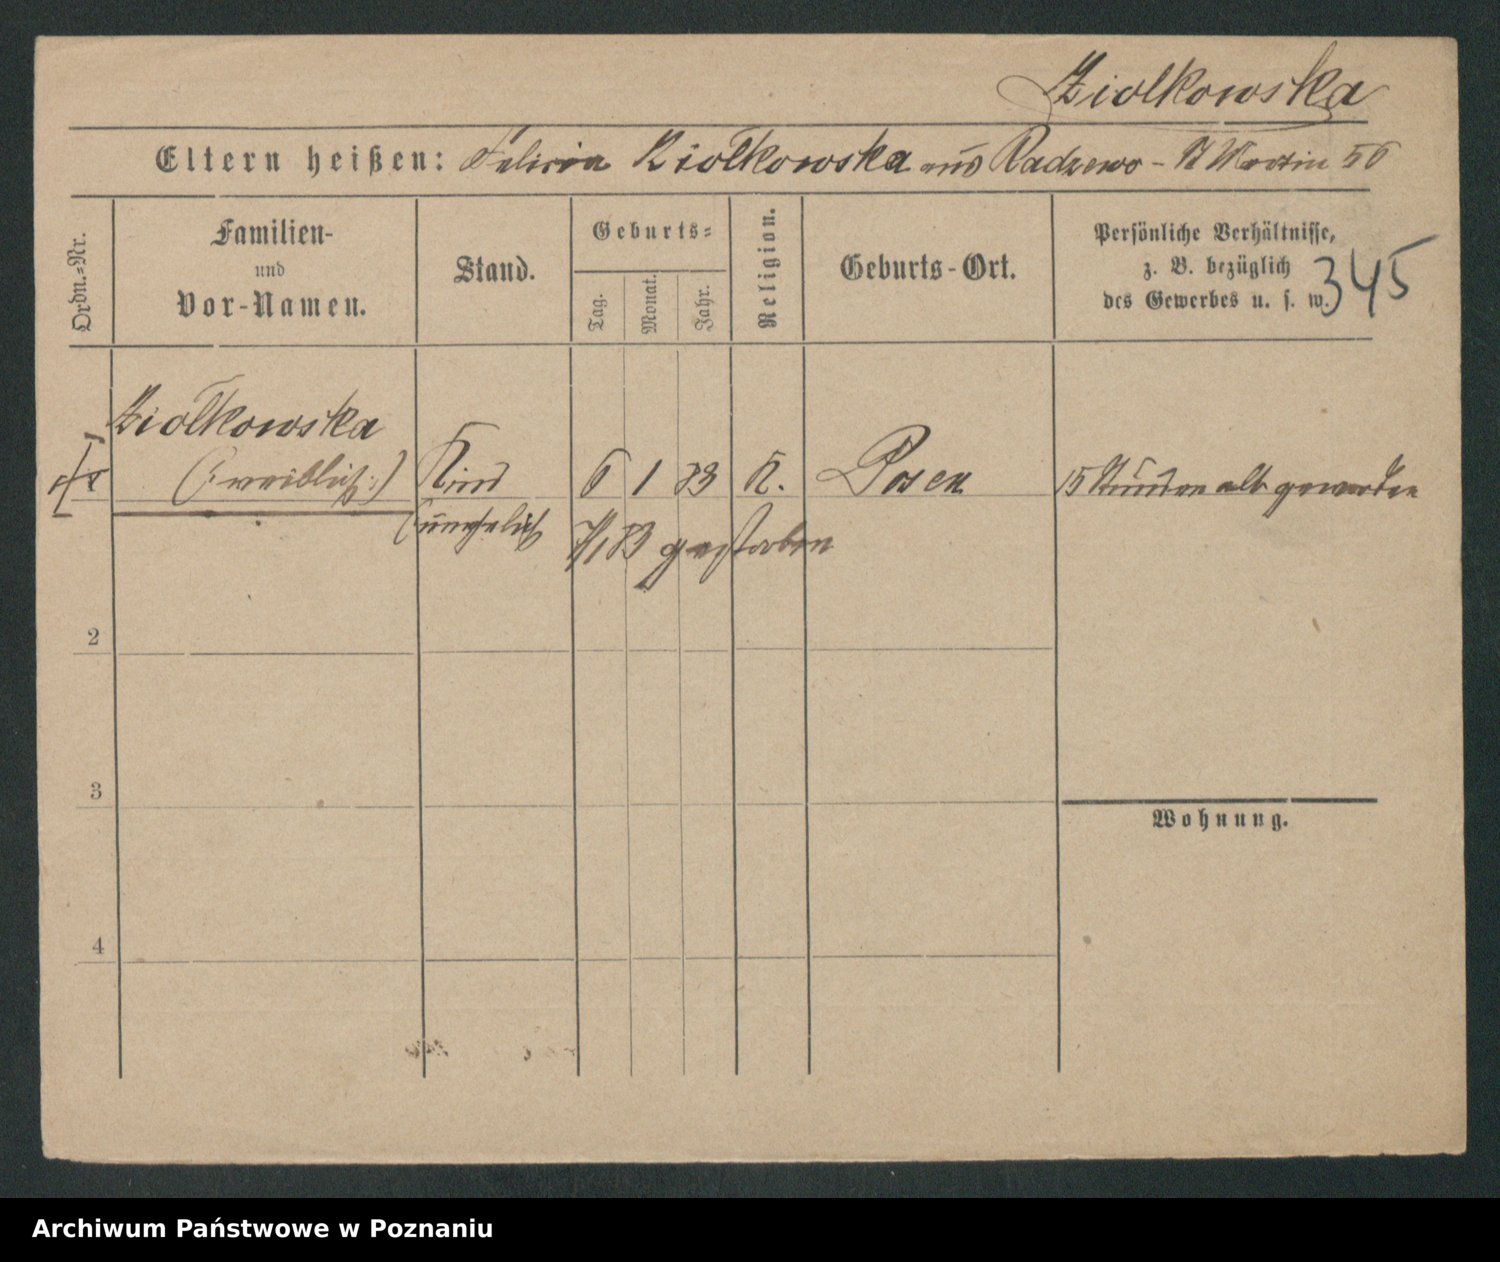 Ziolkowska
Eltern heißen: Felicia Ziolkowska aus Radzewo - St Martin 56
Ordn.=Nr.
Familien-
und
Vor-Namen.
Stand.
Geburts=
Tag.
Monat.
Jahr.
Religion.
Geburts-Ort.
Persönliche Verhältnisse,
z. B. bezüglich
des Gewerbes u. s. w.
345
Ziolkowska
(: weiblich :) Kind 6 1 83 K. Posen 15 Stunden alt geworden
unehelich 7/1 83 gestorben
2
3
Wohnung.
4
Archiwum Państwowe w Poznaniu